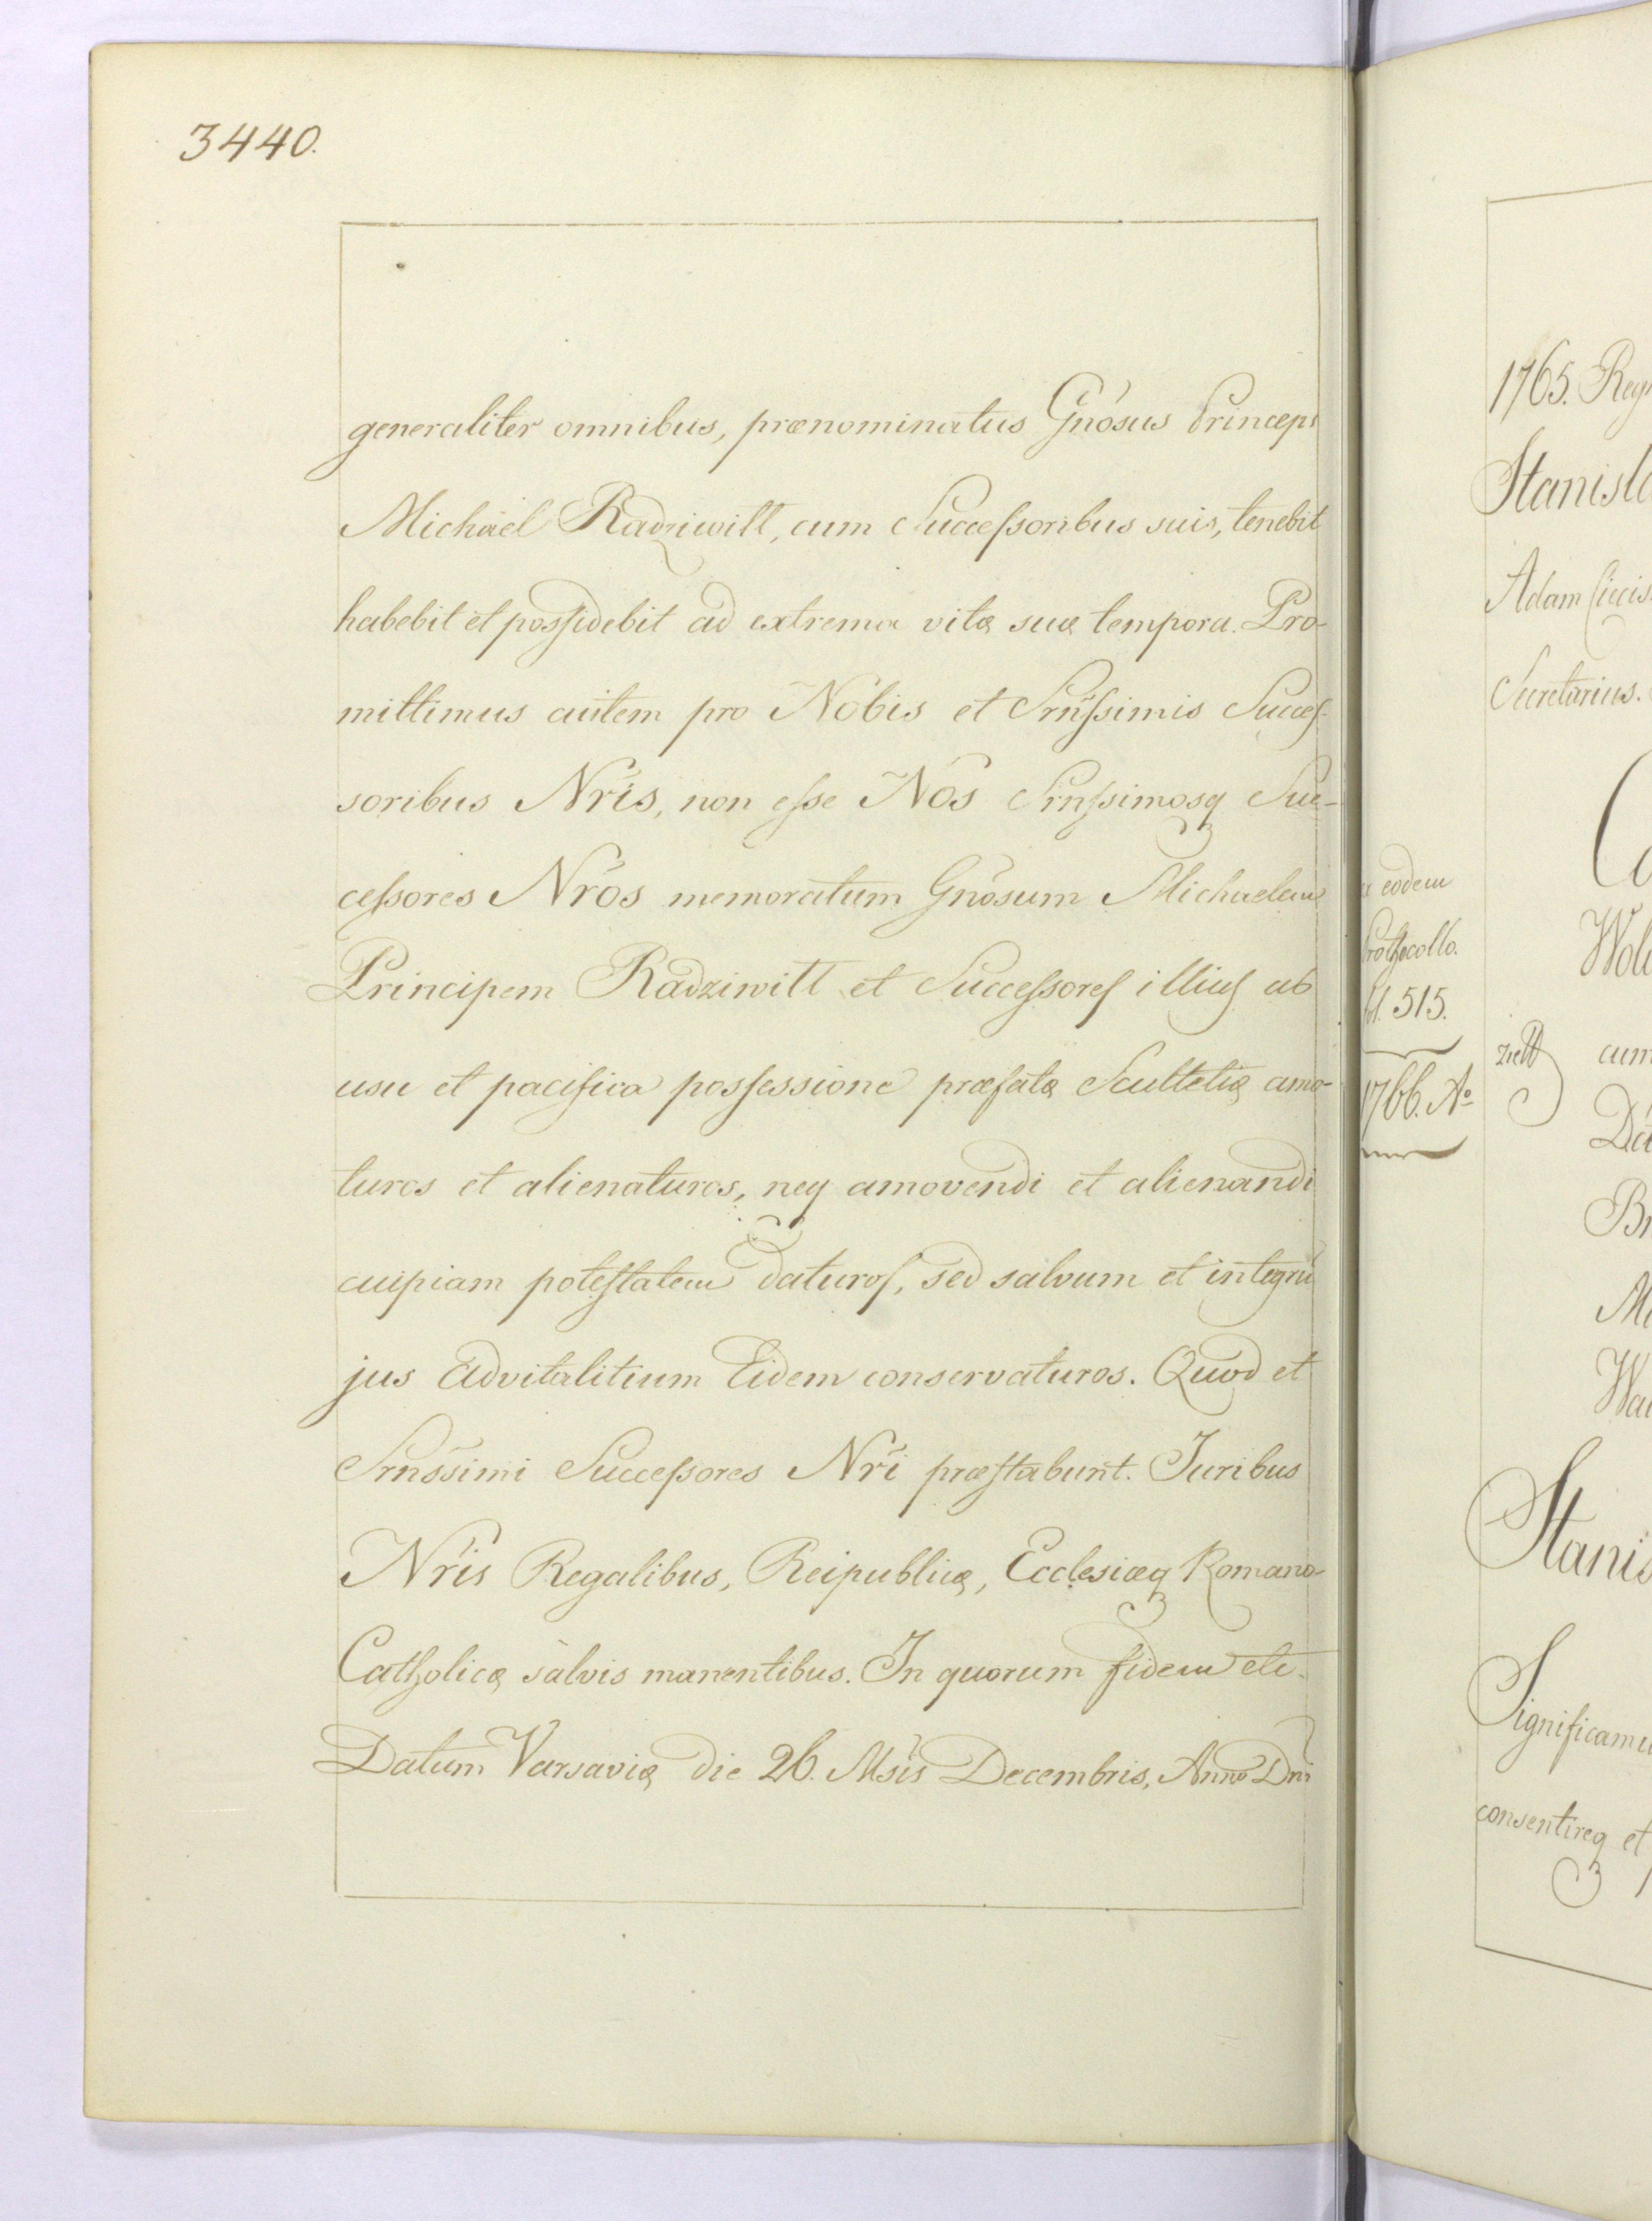 3440.
generaliter omnibus, prænominatus Gnõsus Princeps
Michäel Radziwiłł, cum Succeſsoribus suis, tenebit
habebit et poſsidebit ad extrema vitæ suæ tempora. Pro-
mittimus autem pro Nobis et Srñiſsimis Succeſ-
soribus Nrĩs, non eſse Nos Srñſsimosq Suc-
ceſsores Nrõs memoratum Gnõsum Michaelem
Principem Radziwiłł et Succeſsoreſ illiuſ ab
usu et pacifica poſsessione præfatæ Scultetiæ amo-
turos et alienaturos, neq amovendi et alienandi
cuipiam poteſtatem daturoſ, sed salvum et integrũ
jus Advitalitium Eidem conservaturos. Quod et
Srñssimi Succeſsores Nrĩ præſtabunt. Juribus
Nrĩs Regalibus, Reipublicæ, Ecclesiæq Romano-
Catholicæ salvis manentibus. In quorum fidem etc.
Datum Varsaviæ die 26. Msĩs Decembris, Anno Dnĩ
1765. Reg
Stanisla
Adam Ciecis
Secretarius.
eodem
Prothocollo.
fol. 515.
1766. Aº
Wol
cum
Stanis
Significamu
consentireq et